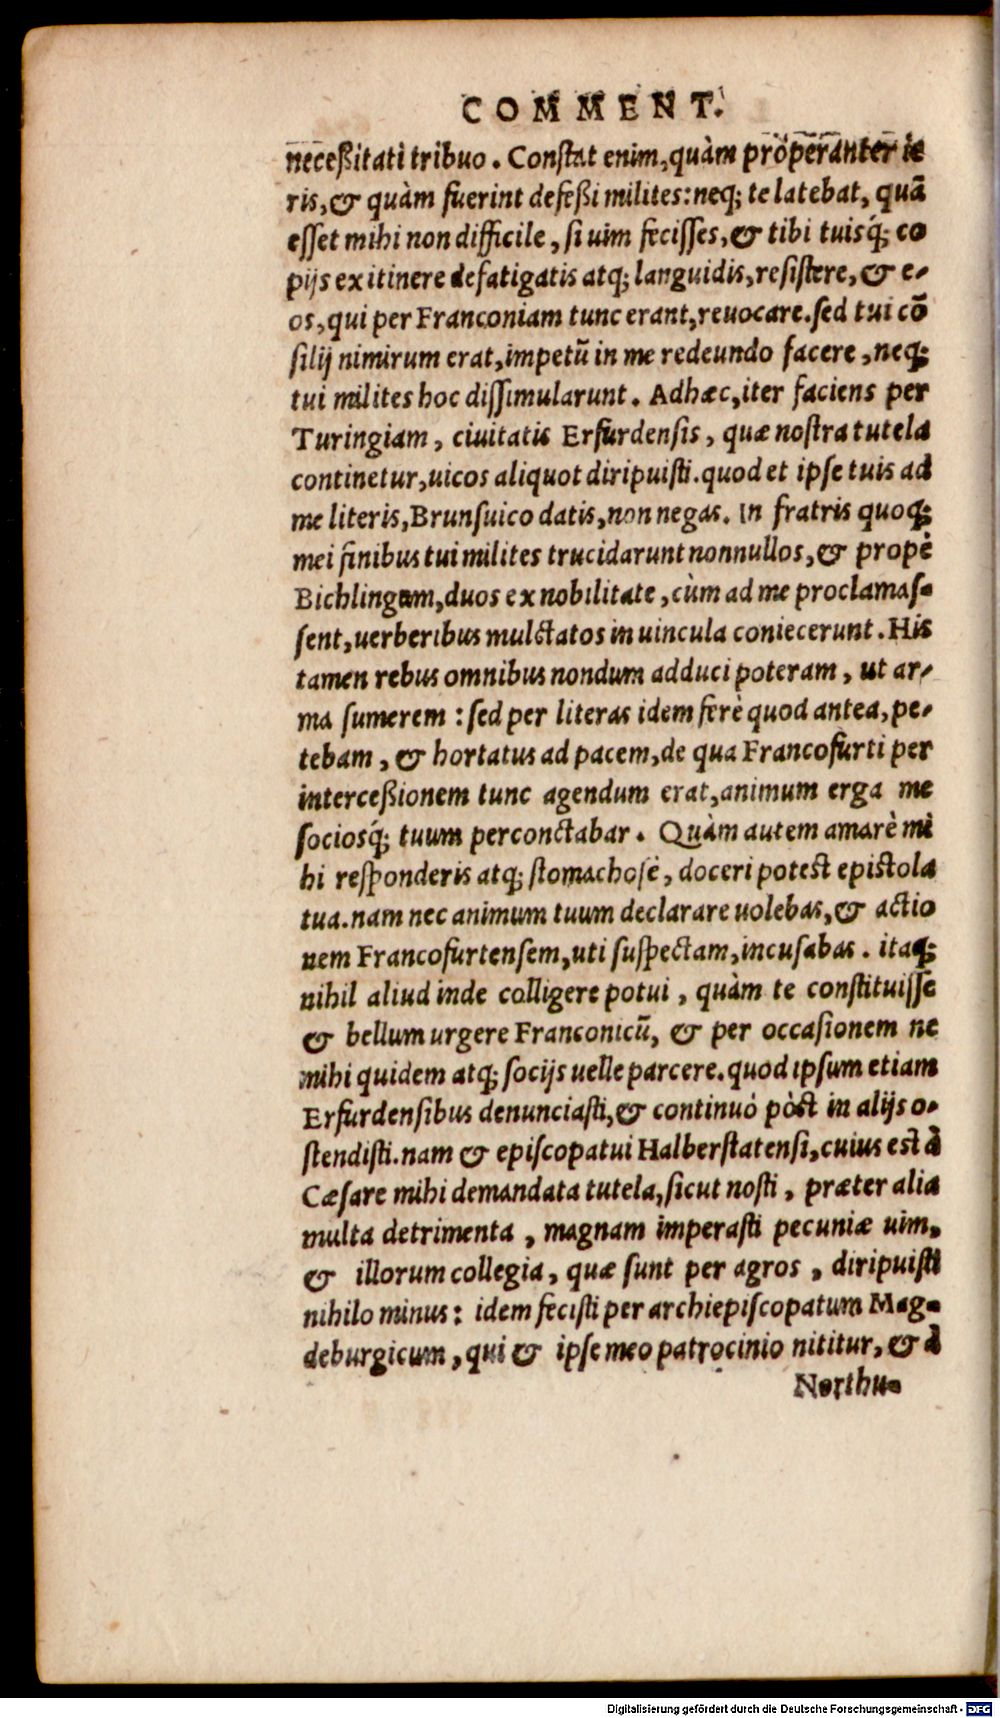 COMMENT.
neceßitati tribuo. Constat enim, quàm properanter ie
ris, & quàm fuerint defeßi milites: neq; te latebat, quã
esset mihi non difficile, si uim fecisses, & tibi tuisq́; co
pijs ex itinere defatigatis atq; languidis, resistere, & e-
os, qui per Franconiam tunc erant, reuocare. sed tui cõ
silij nimirum erat, impetũ in me redeundo facere, neq;
tui milites hoc dissimularunt. Adhæc, iter faciens per
Turingiam, ciuitatis Erfurdensis, quæ nostra tutela
continetur, uicos aliquot diripuisti. quod et ipse tuis ad
me literis, Brunsuico datis, non negas. In fratris quoq;
mei finibus tui milites trucidarunt nonnullos, & propè
Bichlingam, duos ex nobilitate, cùm ad me proclamas-
sent, uerberibus mulctatos in uincula coniecerunt. His
tamen rebus omnibus nondum adduci poteram, ut ar-
ma sumerem: sed per literas idem ferè quod antea, pe-
tebam, & hortatus ad pacem, de qua Francofurti per
interceßionem tunc agendum erat, animum erga me
sociosq́; tuum perconctabar. Quàm autem amarè mi
hi responderis atq; stomachosè, doceri potest epistola
tua. nam nec animum tuum declarare uolebas, & actio
nem Francofurtensem, uti suspectam, incusabas. itaq;
nihil aliud inde colligere potui, quàm te constituisse
& bellum urgere Franconicũ, & per occasionem ne
mihi quidem atq; socijs uelle parcere. quod ipsum etiam
Erfurdensibus denunciasti, & continuò pòst in alijs o-
stendisti. nam & episcopatui Halberstatensi, cuius est à
Cæsare mihi demandata tutela, sicut nosti, præter alia
multa detrimenta, magnam imperasti pecuniæ uim,
& illorum collegia, quæ sunt per agros, diripuisti
nihilo minus: idem fecisti per archiepiscopatum Mag-
deburgicum, qui & ipse meo patrocinio nititur, & à
Northu-
Digitalisierung gefördert durch die Deutsche Forschungsgemeinschaft - DFG